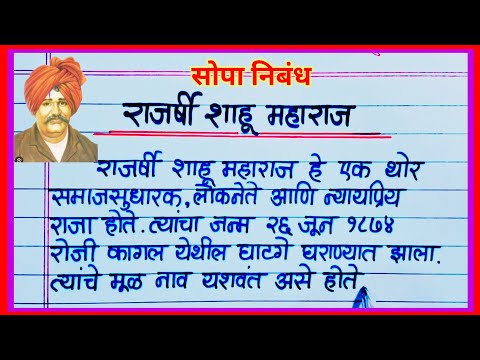 सोपा निबंध
राजर्षी शाहू महाराज
राजर्षी शाहू महाराज हे एक थोर
समाजसुधारक,लोकनेते आणि न्यायप्रिय
राजा होते.त्यांचा जन्म २६ जून १८७४
रोजी कागल येथील घाटगे घराण्यात झाला.
त्यांचे मूळ नाव यशवंत असे होते